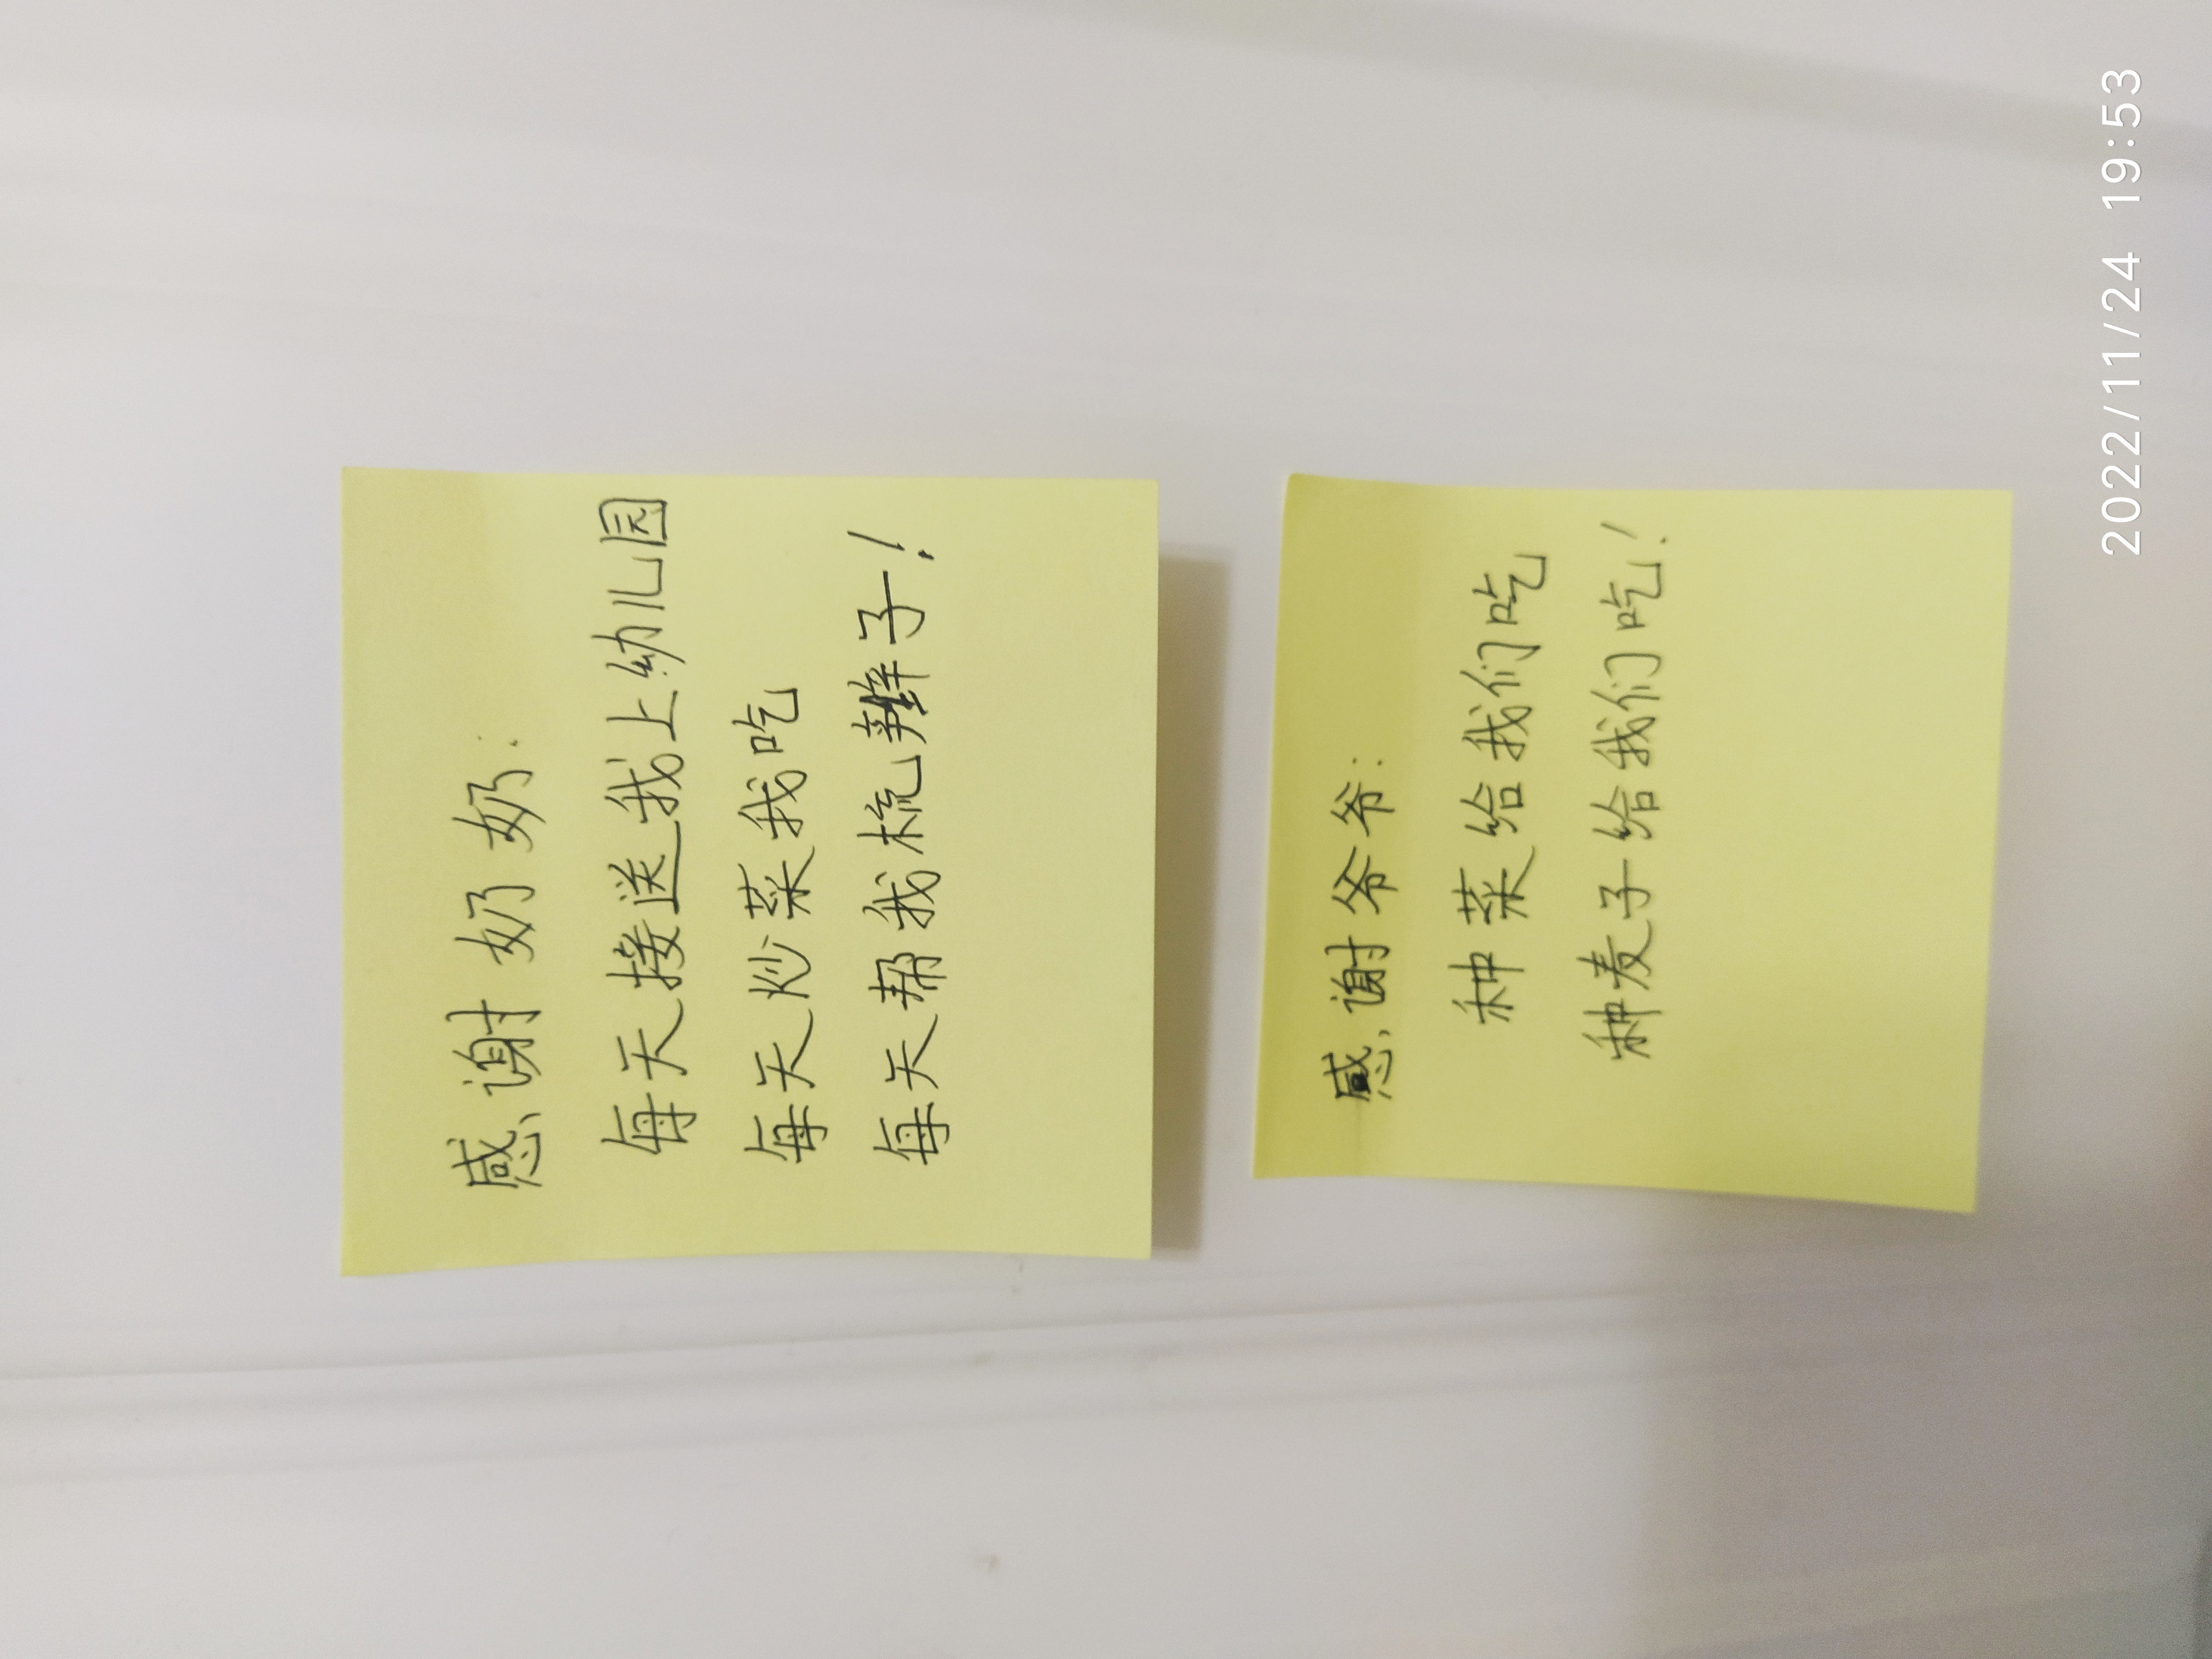 感谢奶奶：
每天接送我上幼儿园
每天炒菜我吃
每天帮我梳辫子！
感谢爷爷：
种菜给我们吃
种麦子给我们吃！
2022/11/24 19:53